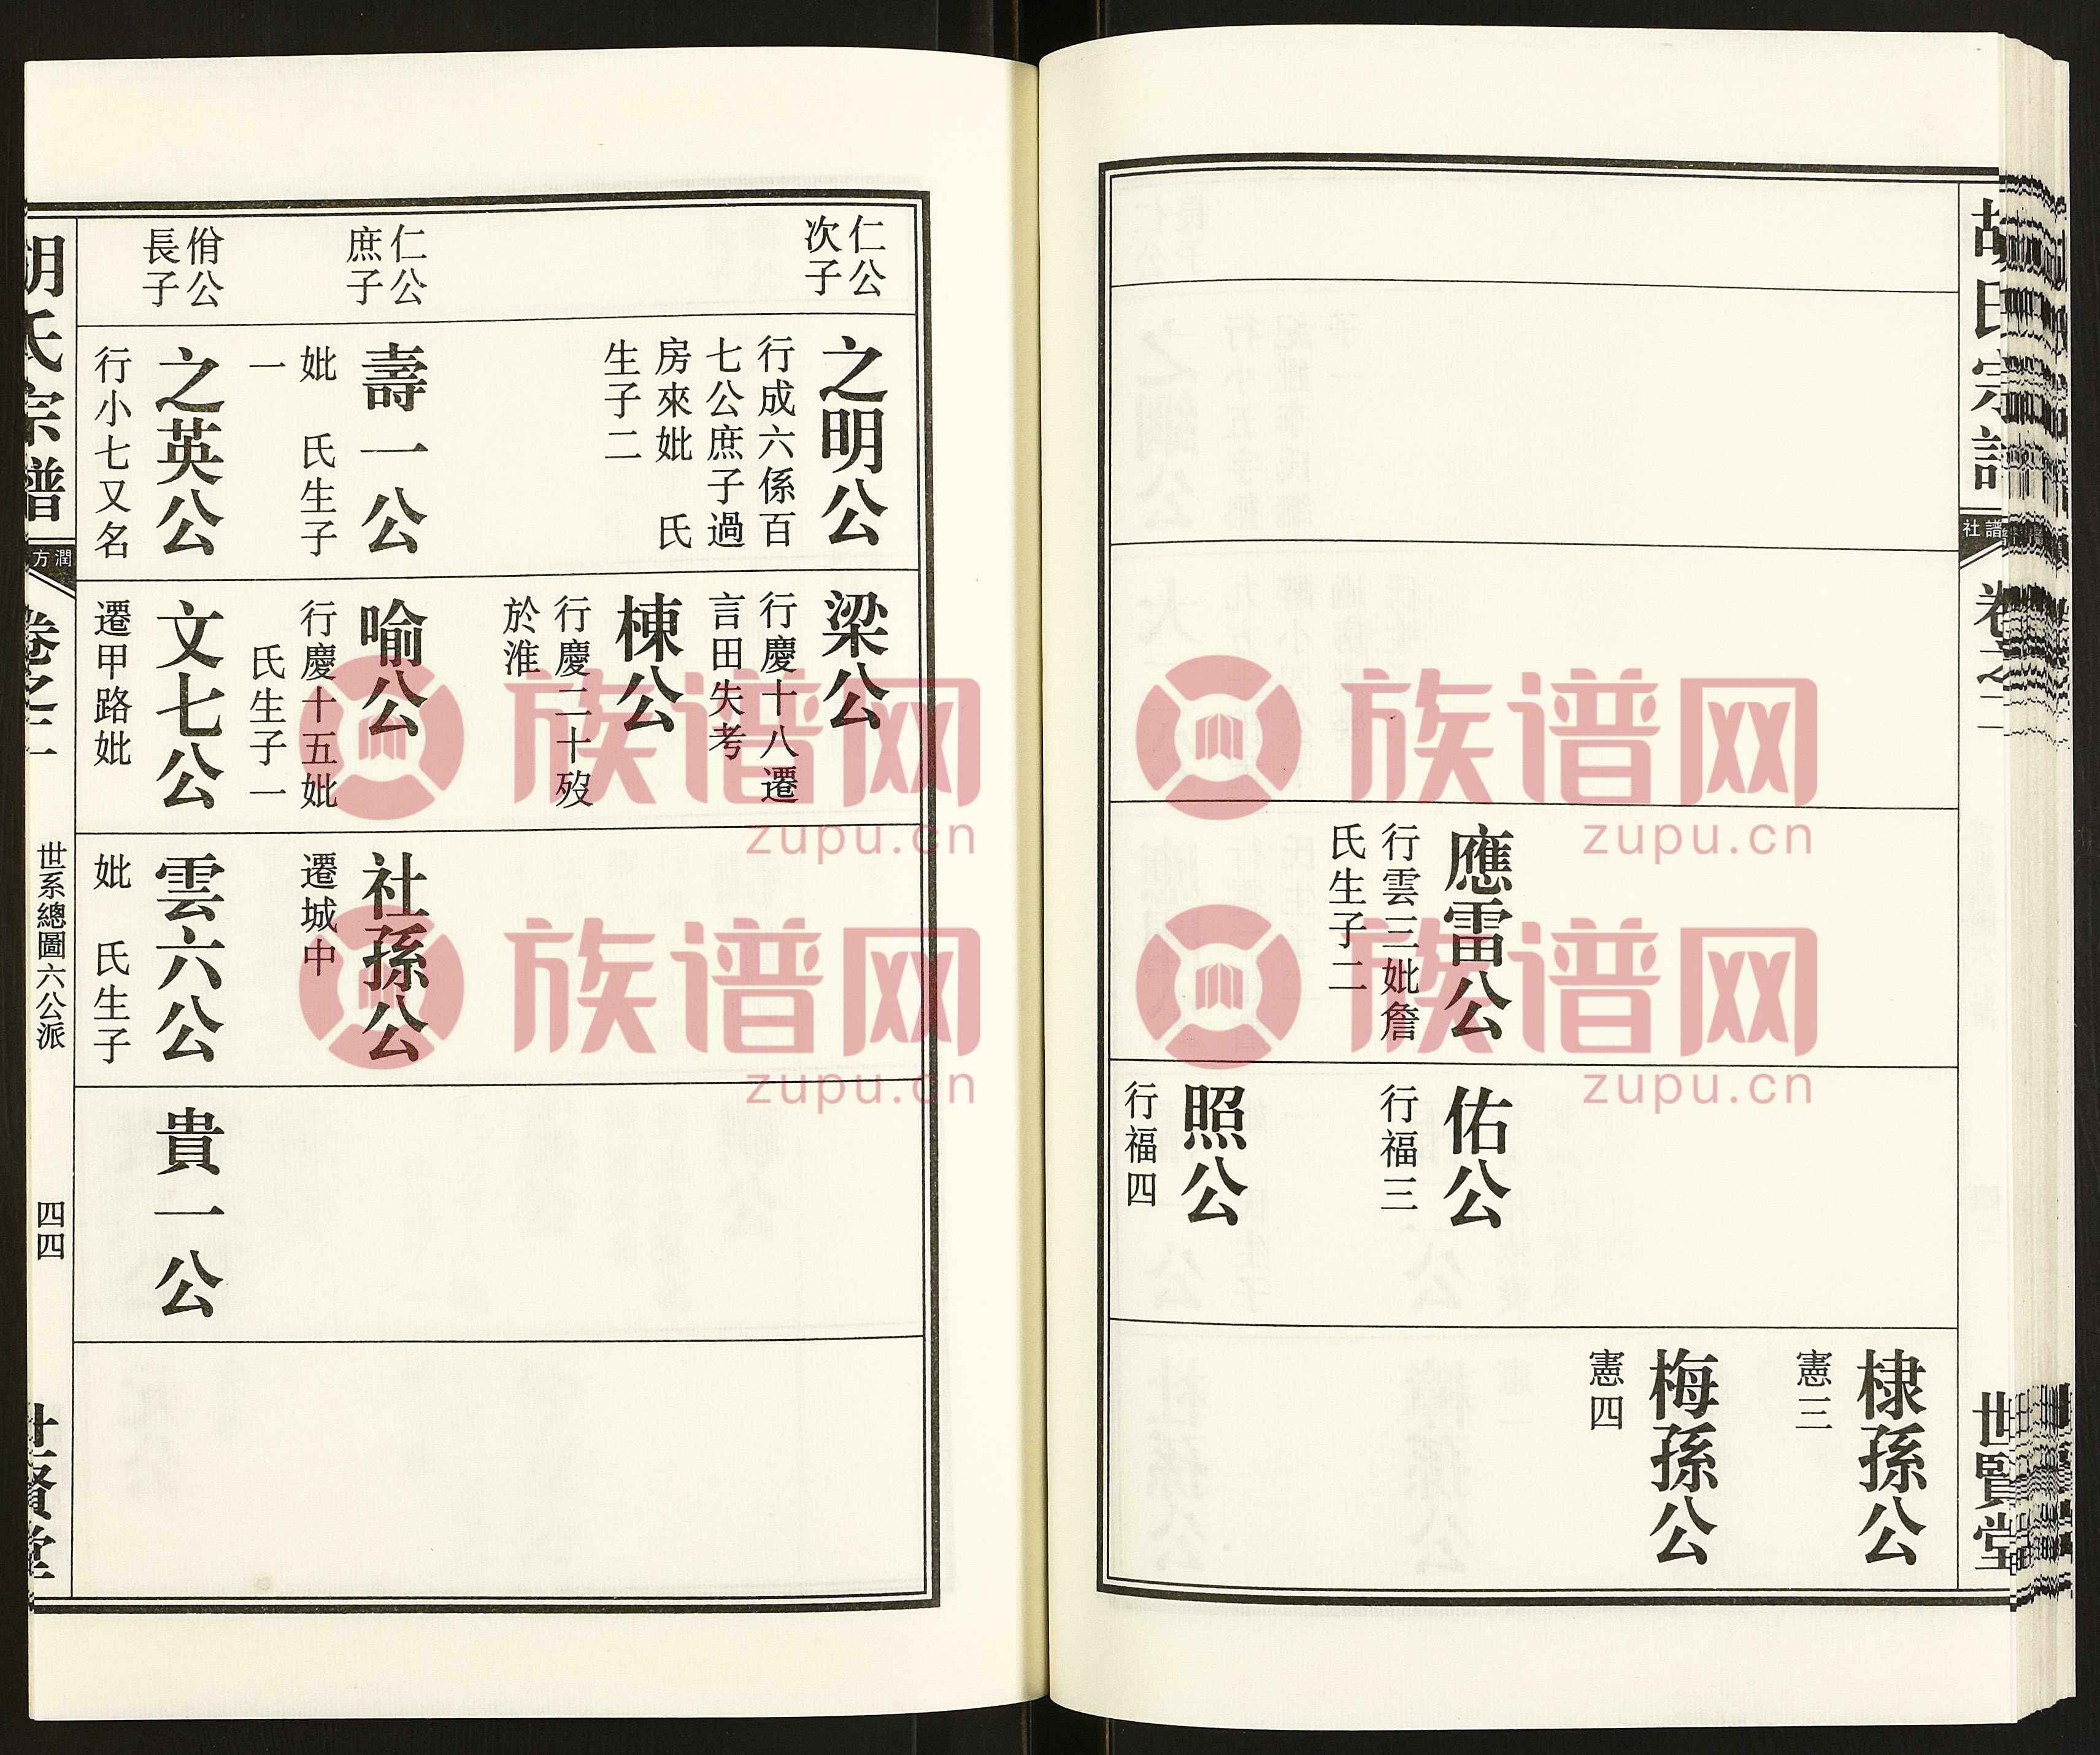 胡氏宗譜
譜社
卷之二
世賢堂
應雷公
行雲三妣詹
氏生子二
佑公
行福三
照公
行福四
棣孫公
憲三
梅孫公
憲四
仁公
次子
之明公
行成六係百
七公庶子過
房來妣 氏
生子二
梁公
行慶十八遷
言田失考
棟公
行慶二十歿
於淮
仁公
庶子
壽一公
妣 氏生子
一
喻公
行慶十五妣
氏生子一
社孫公
遷城中
佾公
長子
之英公
行小七又名
文七公
遷甲路妣
雲六公
妣 氏生子
貴一公
胡氏宗譜
潤方
卷之二
世系總圖六公派
四四
世賢堂
族谱网
zupu.cn
族谱网
zupu.cn
族谱网
zupu.cn
族谱网
zupu.cn